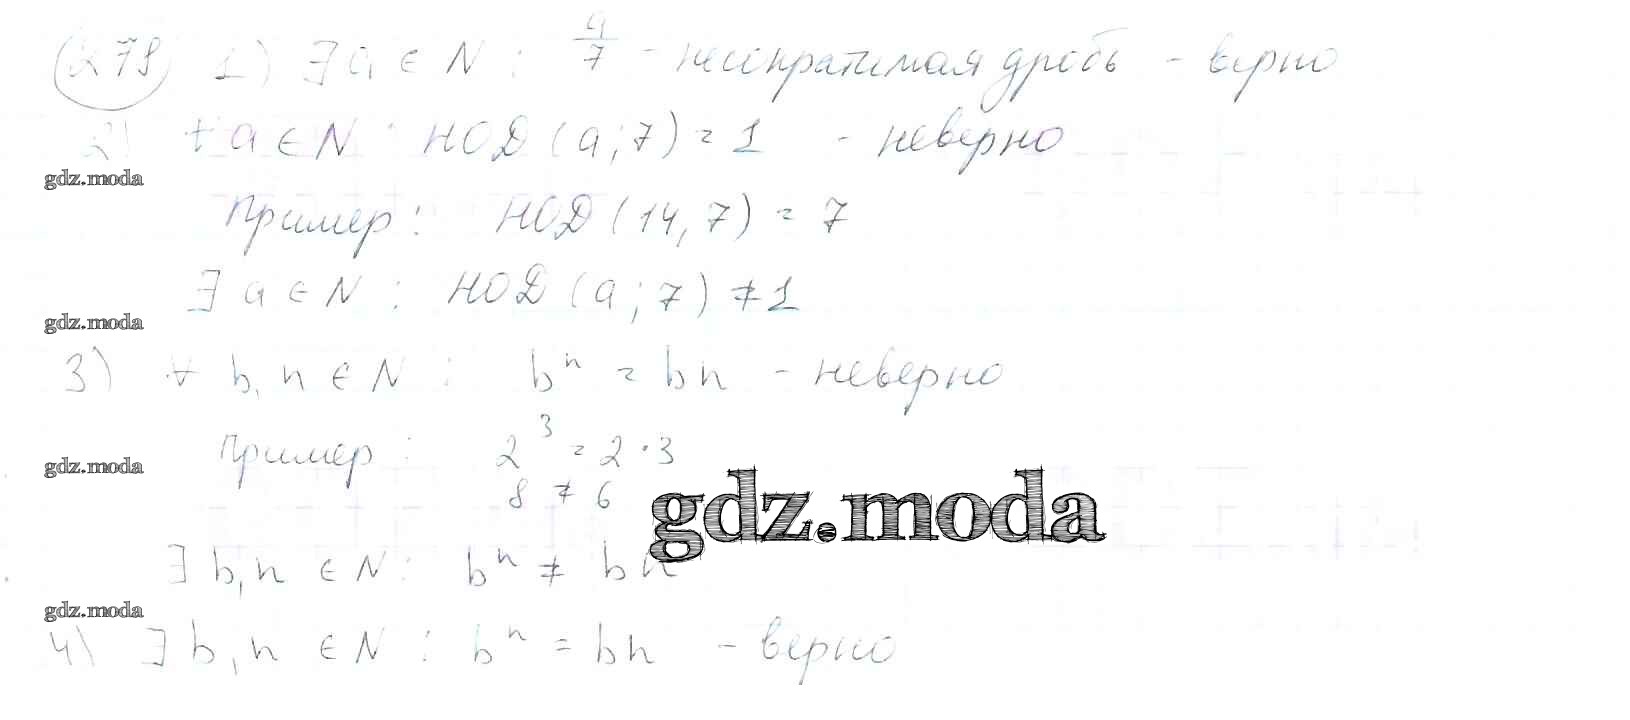 278 1) ∃ a ∈ N : a/7 - несократимая дробь - верно
2) ∀ a ∈ N : НОД (a; 7) = 1 - неверно
gdz.moda
Пример: НОД (14, 7) = 7
∃ a ∈ N : НОД (a; 7) ≠ 1
gdz.moda
3) ∀ b, n ∈ N : bⁿ = bn - неверно
Пример: 2³ = 2 · 3
gdz.moda
8 ≠ 6
gdz.moda
∃ b, n ∈ N : bⁿ ≠ bn
gdz.moda
4) ∃ b, n ∈ N : bⁿ = bn - верно